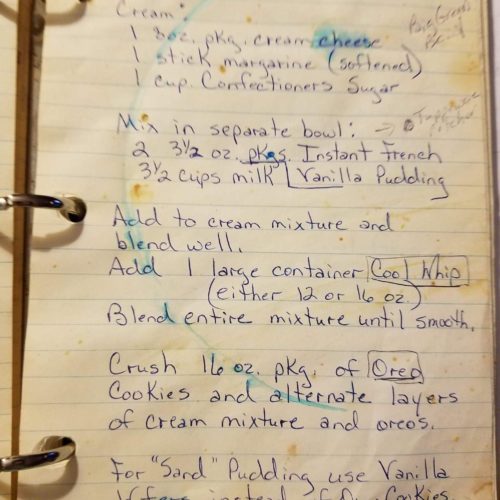 Cream:
1 8oz. pkg. cream cheese
1 stick margarine (softened)
1 cup Confectioners Sugar
Mix in separate bowl:
2 3½ oz. pkgs. Instant French
3½ cups milk Vanilla Pudding
Add to cream mixture and
blend well.
Add 1 large container Cool Whip
(either 12 or 16 oz.)
Blend entire mixture until smooth.
Crush 16 oz. pkg. of Oreo
Cookies and alternate layers
of cream mixture and oreos.
For "Sand" Pudding use Vanilla
Wafers instead of Oreo Cookies